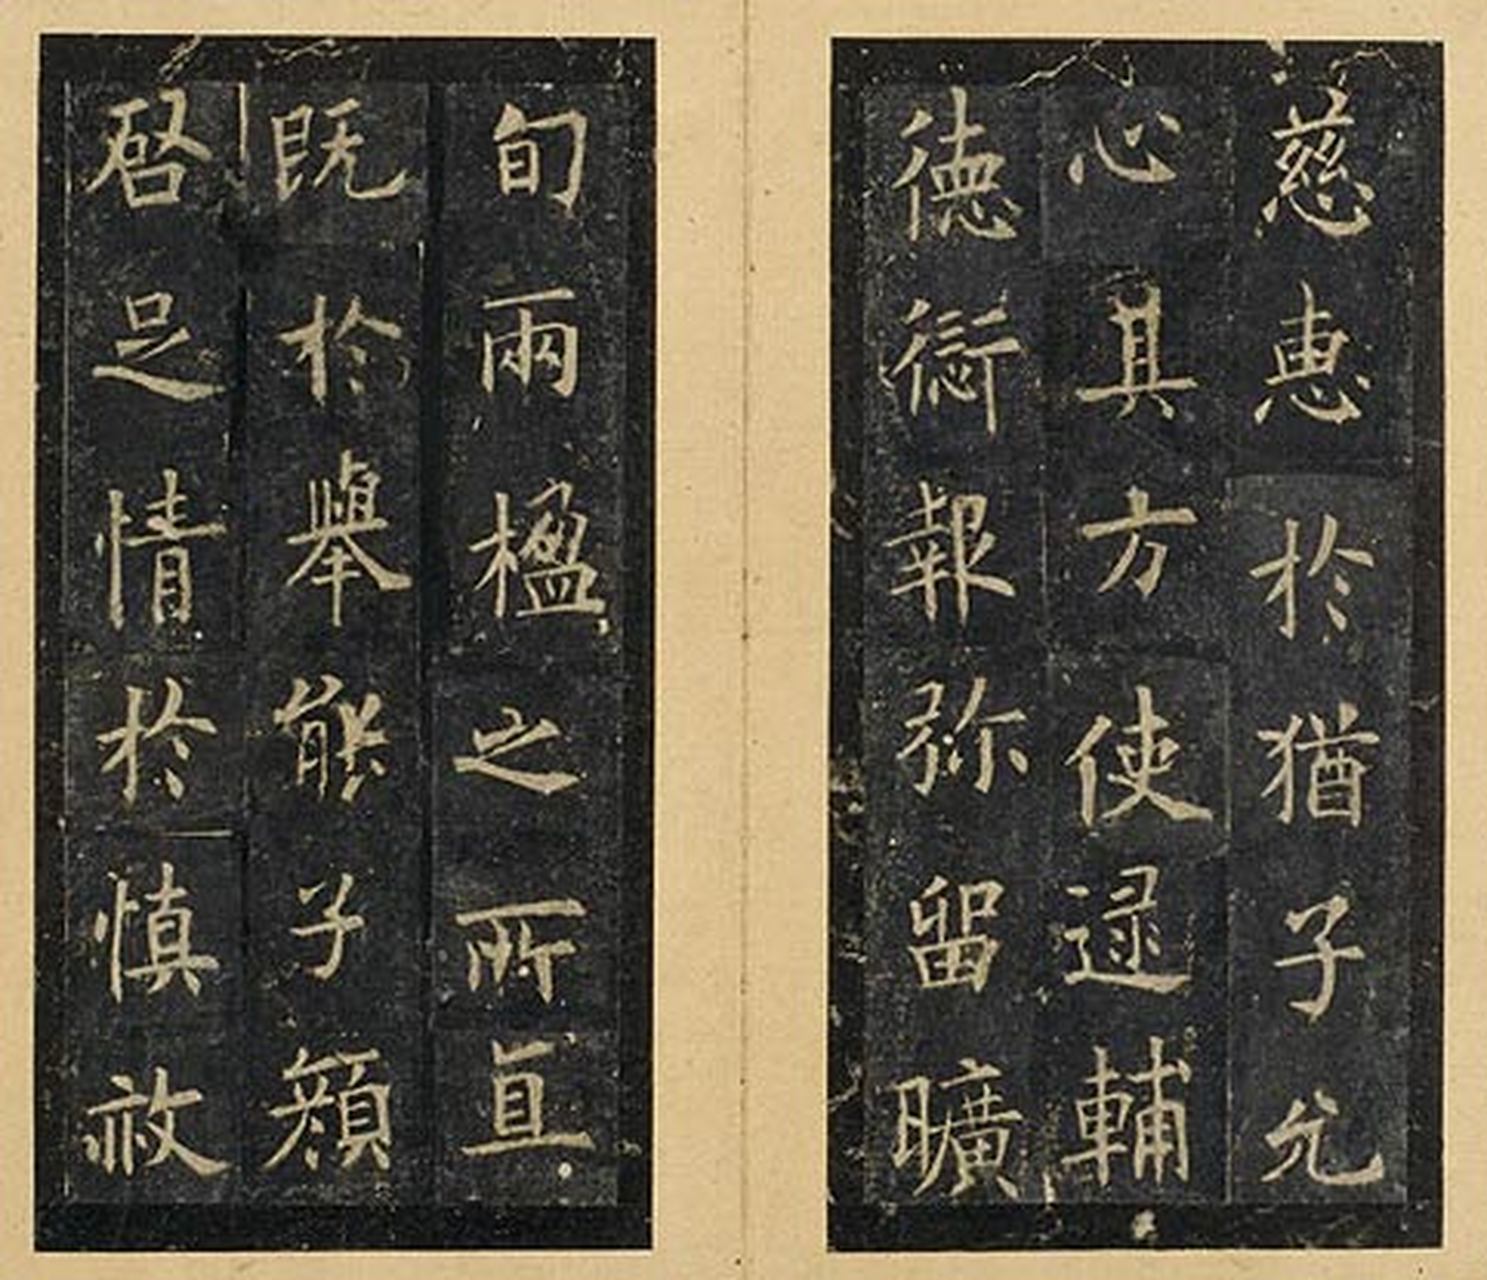 慈惠於猶子允
心其方使逯輔
徳愆報弥留曠
旬兩楹之所直
既於舉能子顔
啓足情於慎赦